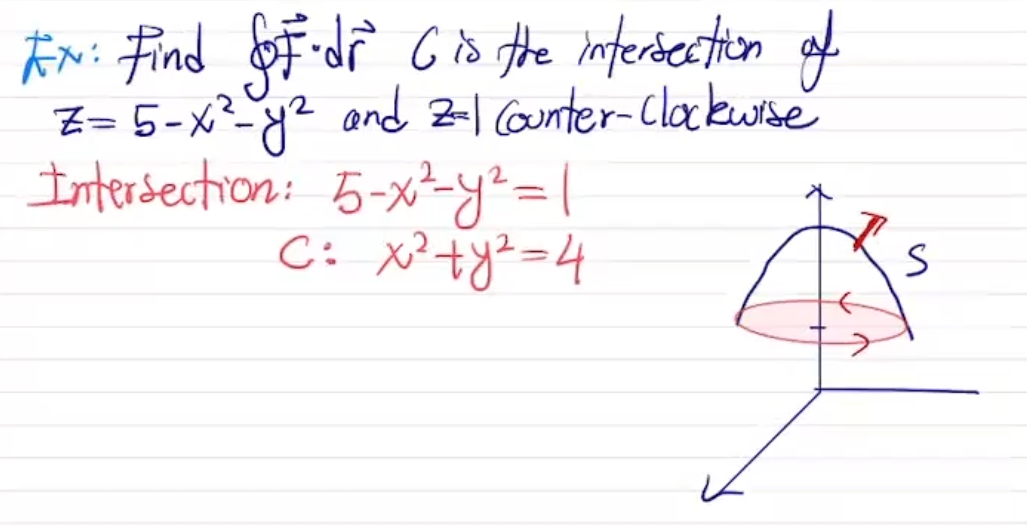 Ex: Find ∮F⃗·dr⃗ C is the intersection of
z = 5-x²-y² and z=1 Counter-Clockwise
Intersection: 5-x²-y² = 1
C: x²+y²=4
S